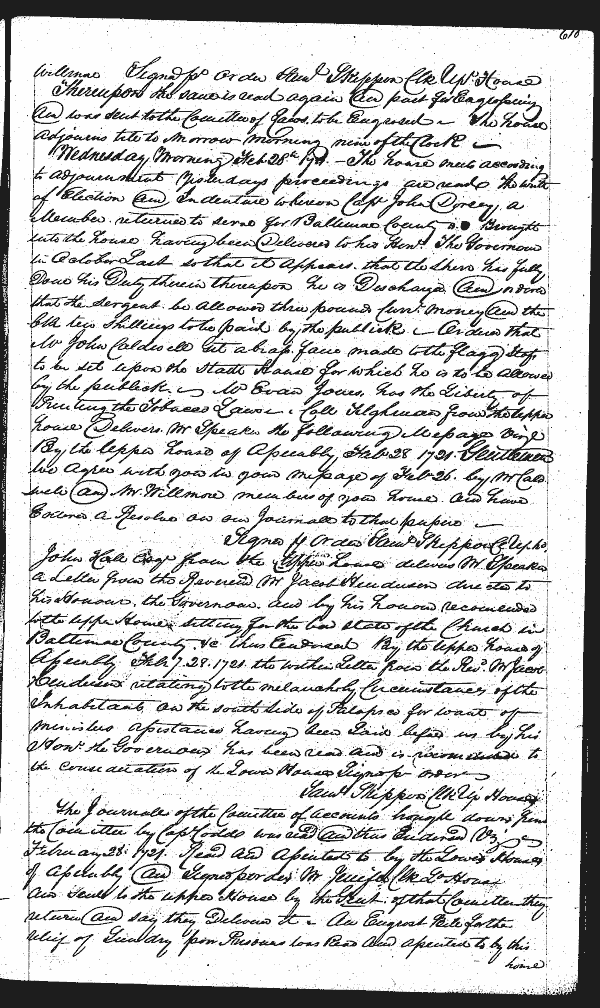 610
Willmore Signed p order Saml Skippon Clk Upr House
Thereupon the same is read again and past for Engrossing
and was sent to the Comittee of Laws to be Engrossed - The house
adjourns till to Morrow Morning nine of the Clock
Wednesday Morning Feb 28th 1721. - The house meets according
to adjournment Yesterdays proceedings are read. The writt
of Election and Indenture whereon Capt John Dorsey, a
Member returned to serve for Baltimore County is Brought
into the house having been Delivered to his Honr. The Governour
in October Last so that it appears that the Sherr has fully
Done his Duty therein thereupon he is Discharged and orderd
that the Sergent be Allowed three pound Curr. money and the
Clk ten shillings to be paid by the publick - Ordered that
Mr John Caldwell get a brass fane made to the flagg Staff
to be set upon the Stadt House for which he is to be Allowed
by the publick. Mr Evan Jones has the Liberty of
Printing the Tobacco Laws. Coll Tilghman from the upper
house Delivers Mr Speaker the following Message Vizt
By the upper house of Assembly Feb 28 1721. Gentlemen
We Agree with you in your message of Feb 26. by Mr Cald
well and Mr. Willmore members of your house. and have
Entered a Resolve on our Journale to that purpose
Signed p Order Saml Skippon Ck Up ho.
John Hale Esqr from the upper house delivers Mr. Speaker
a Letter from the Reverend Mr Jacob Henderson directed to
his Honour the Governour and by his honour recomended
to the upper House setting forth the state of the Church in
Baltimore County &c thus Endorsed By the upper house of
Assembly Feb 28. 1721. the within Letter from the Revd. Mr Jacob
Henderson relating to the melancholy Circumstances of the
Inhabitants on the south side of Patapsco for want of
ministers assistance having been Laid before us by his
Honr. the Governour has been read and is recomended to
the consideration of the Lower House Signed p order
Saml Skippon Clk Up House
The Journale of the Comittee of accounts brought down from
the Comittee by Capt Codds was read and thus Endorsed Vizt
February 28. 1721. Read and Assented to by the Lower House
of Assembly and Signed p order Mr Jenifer Clk Lo House
and Sent to the upper House by the Gent. of that Comittee they
return and say they Delivered it - An Engrost Bill for the
relief of Sundry poor Prisoners was Read and assented to by this
house